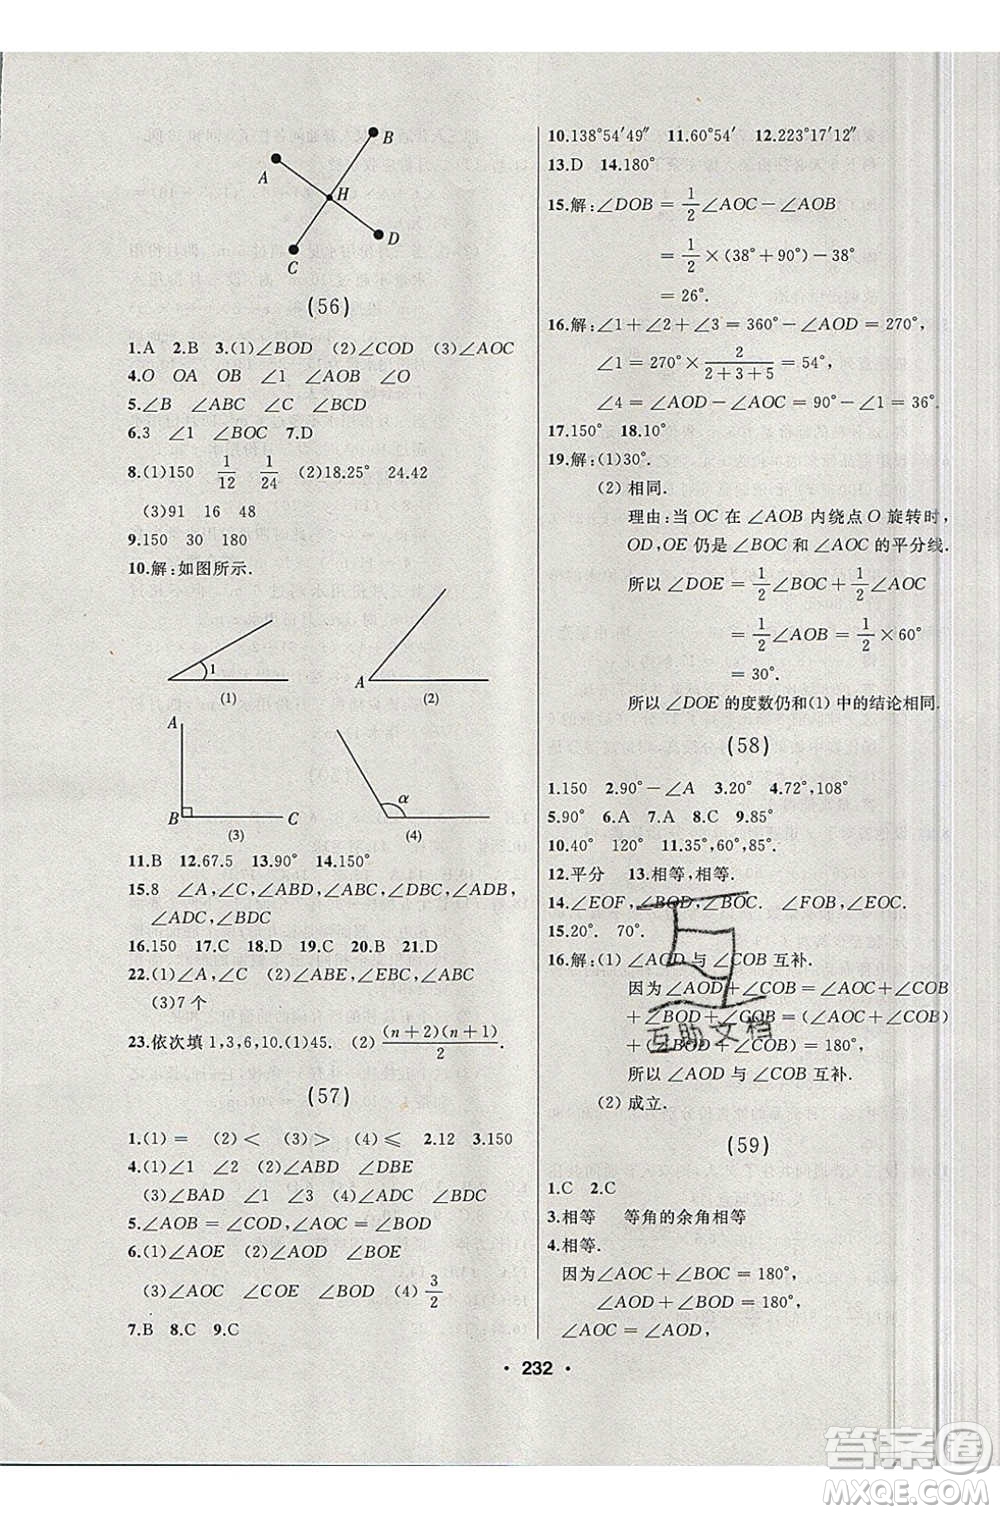 B
A
H
D
C
(56)
1.A 2.B 3.(1)∠BOD (2)∠COD (3)∠AOC
4.O OA OB ∠AOB ∠O
5.∠B ∠ABC ∠C ∠BCD
6.3 ∠1 ∠BOC 7.D
8.(1)150 1/12 1/24 (2)18.25° 24.42
(3)91 16 48
9.150 30 180
10.解:如图所示.
1
(1)
A
(2)
A
B
C
(3)
α
(4)
11.B 12.67.5 13.90° 14.150°
15.8 ∠A,∠C,∠ABD,∠ABC,∠DBC,∠ADB,
∠ADC,∠BDC
16.150 17.C 18.D 19.C 20.B 21.D
22.(1)∠A,∠C (2)∠ABE,∠EBC,∠ABC
(3)7个
23.依次填1,3,6,10.(1)45. (2) (n+2)(n+1)/2.
(57)
1.(1)= (2)< (3)> (4)⩽ 2.12 3.150
4.(1)∠1 ∠2 (2)∠ABD ∠DBE
(3)∠BAD ∠1 ∠3 (4)∠ADC ∠ADB
5.∠AOB=∠COD,∠AOC=∠BOD
6.(1)∠AOE (2)∠AOD ∠BOE
(3)∠AOC ∠COE ∠BOD (4) 3/2
7.B 8.C 9.C
10.138°54′49″ 11.60°54′ 12.223°17′12″
13.D 14.180°
15.解:∠DOB=1/2∠AOC-∠AOB
=1/2×(38°+90°)-38°
=26°.
16.解:∠1+∠2+∠3=360°-∠AOD=270°,
∠1=270°×2/(2+3+5)=54°,
∠4=∠AOD-∠AOC=90°-∠1=36°.
17.150° 18.10°
19.解:(1)30°.
(2)相同.
理由:当OC在∠AOB内绕点O旋转时,
OD,OE仍是∠BOC和∠AOC的平分线.
所以∠DOE=1/2∠BOC+1/2∠AOC
=1/2∠AOB=1/2×60°
=30°.
所以∠DOE的度数仍和(1)中的结论相同.
(58)
1.150 2.90°-∠A 3.20° 4.72°,108°
5.90° 6.A 7.A 8.C 9.85°
10.40° 120° 11.35°,60°,85°.
12.平分 13.相等,相等.
14.∠EOF,∠BOD,∠BOC. ∠FOB,∠EOC.
15.20°. 70°.
16.解:(1)∠AOD与∠COB互补.
因为∠AOD+∠COB=∠AOB
+∠BOD+∠COB=(∠AOB+∠COB)
+(∠BOD+∠COB)=180°,
所以∠AOD与∠COB互补.
(2)成立.
(59)
1.C 2.C
3.相等 等角的余角相等
4.相等.
因为∠AOC+∠BOC=180°,
∠AOD+∠BOD=180°,
∠AOC=∠AOD,
• 232 •
互助文档
答案圈
MXQE.COM